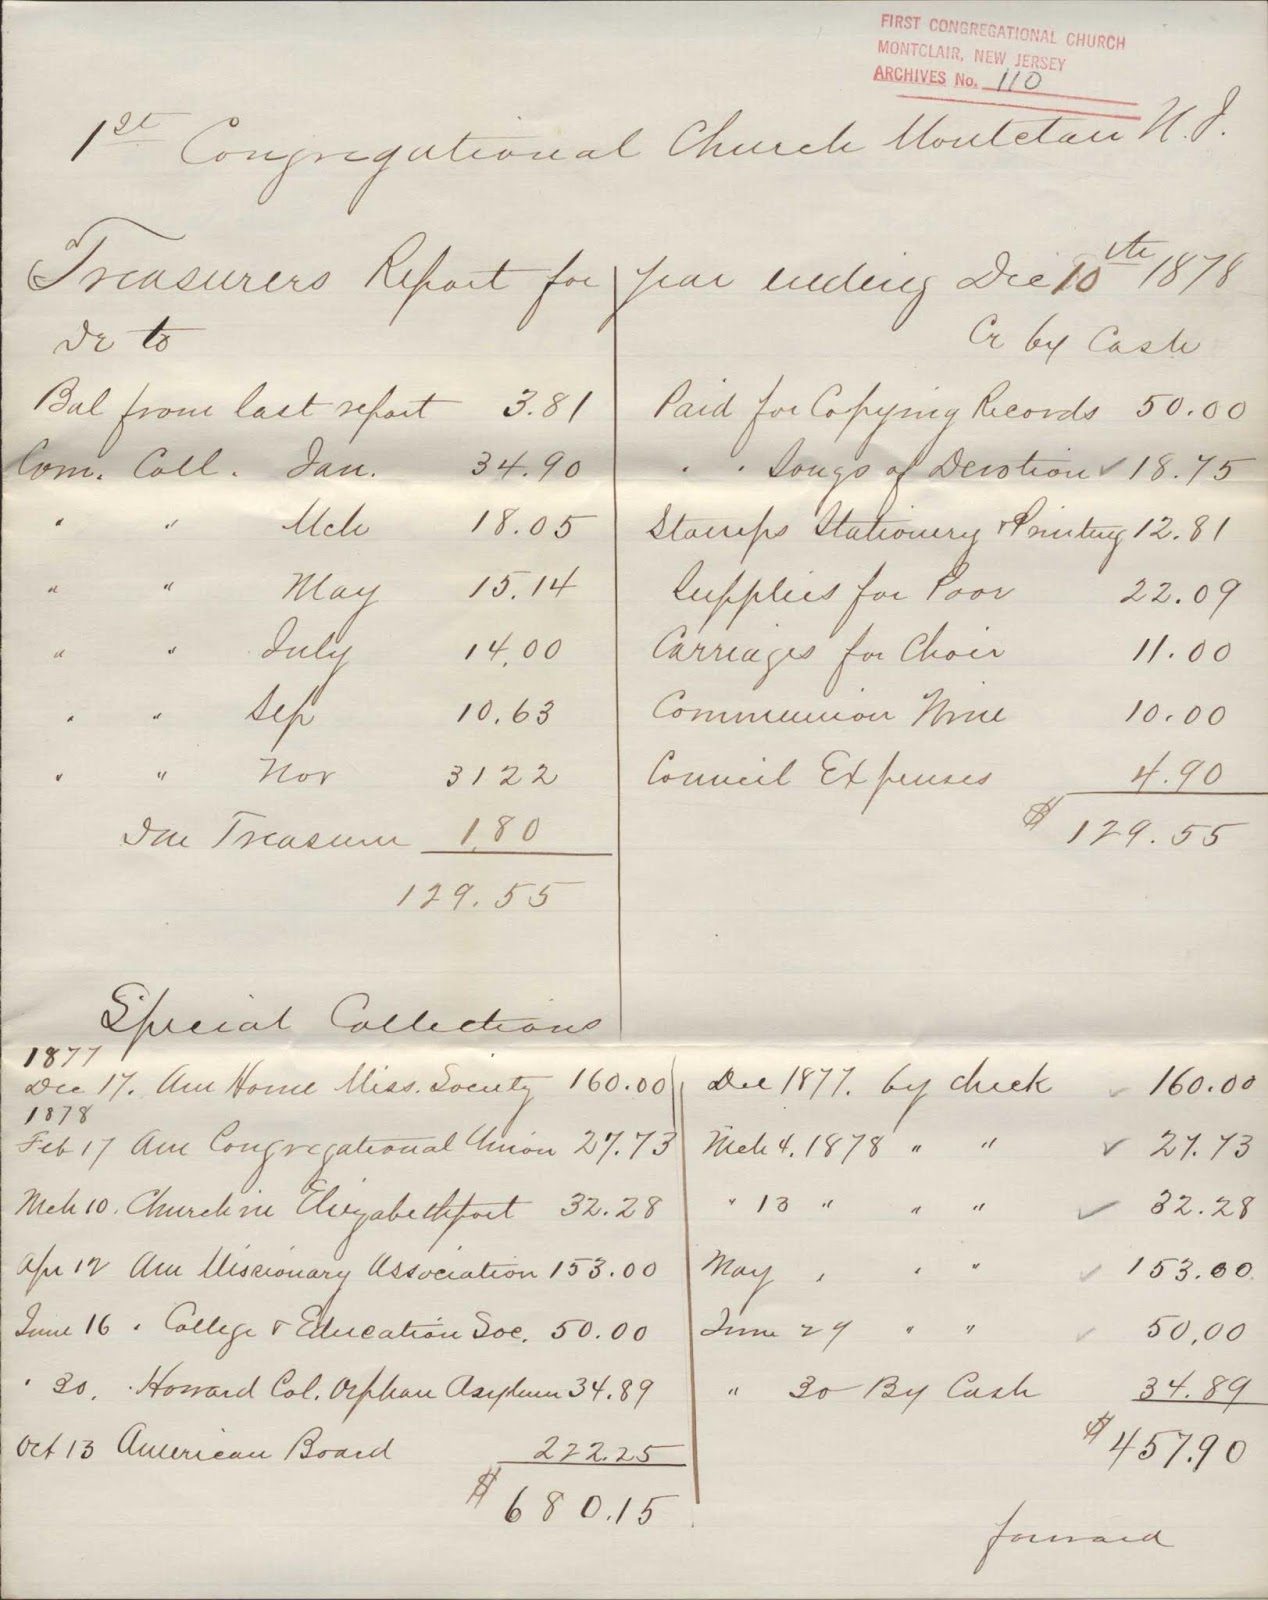 FIRST CONGREGATIONAL CHURCH
MONTCLAIR, NEW JERSEY
ARCHIVES No. 110
1st Congregational Church Montclair N.J.
Treasurers Report for year ending Dec 10th 1878
Dr to
Cr by Cash
Bal from last report 3.81
Paid for Copying Records 50.00
Com. Coll. Jan. 34.90
" " Songs of Devotion ✓ 18.75
" " Mch 18.05
Stamps Stationery & Printing 12.81
" " May 15.14
Supplies for Poor 22.09
" " July 14.00
Carriages for Choir 11.00
" " Sep 10.63
Communion Wine 10.00
" " Nov 31 22
Council Expenses 4.90
Due Treasurer 1.80
$ 129.55
129.55
Special Collections
1877
Dec 17. Am Home Miss. Society 160.00
Dec 1877. by check ✓ 160.00
1878
Feb 17 Am Congregational Union 27.73
Mch 4. 1878 " " ✓ 27.73
Mch 10. Church in Elizabethport 32.28
" 13 " " " ✓ 32.28
Apr 12 Am Missionary Association 153.00
May " " " ✓ 153.00
June 16 " College & Education Soc. 50.00
June 29 " " ✓ 50.00
" 30. Howard Col. Orphan Asylum 34.89
" 30 By Cash 34.89
Oct 13 American Board 222.25
$ 457.90
$ 680.15
forward